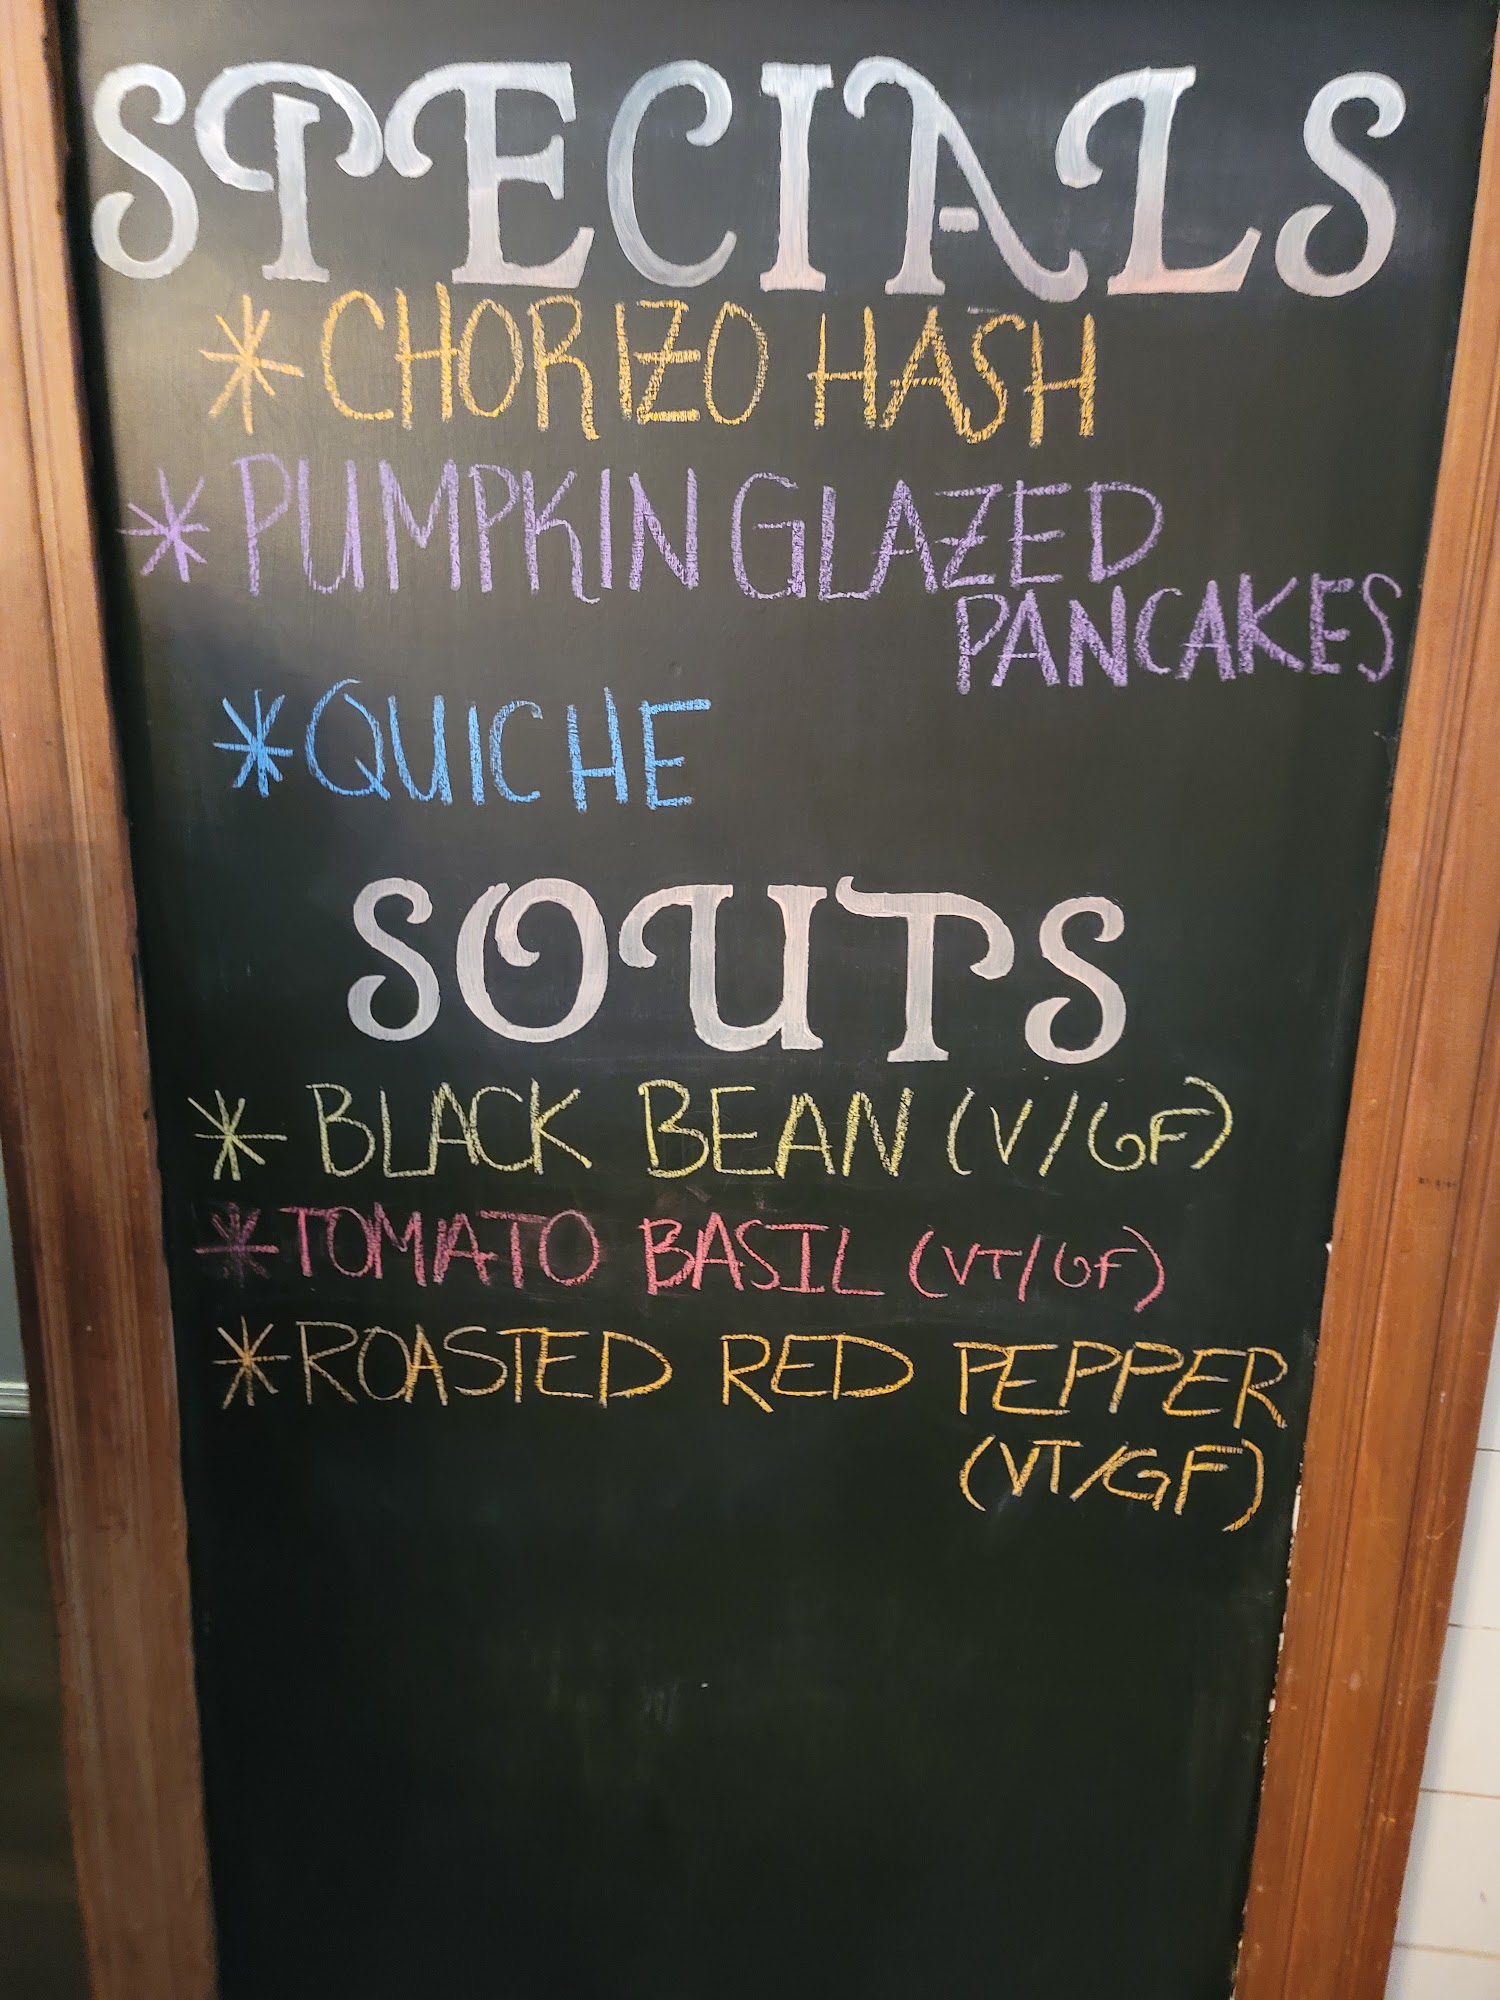 SPECIALS
* CHORIZO HASH
* PUMPKIN GLAZED
PANCAKES
* QUICHE
SOUPS
* BLACK BEAN (V/GF)
* TOMATO BASIL (VT/GF)
* ROASTED RED PEPPER
(VT/GF)